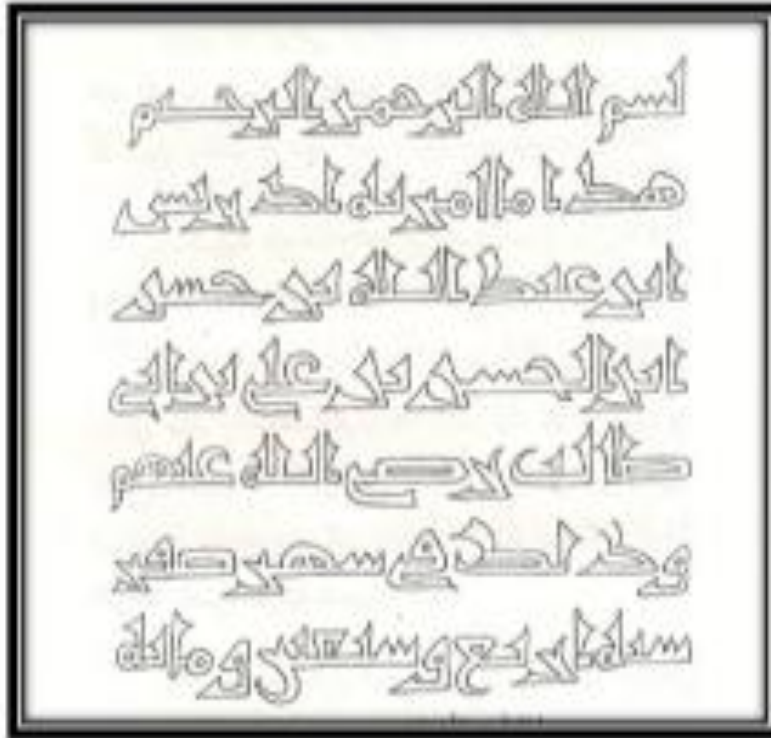 بسم الله الرحمن الرحيم
هذا ما امر به ادريس
ابن عبد الله بن حسن
ابن الحسن بن علي بن ابي
طالب رضي الله عنهم
وذلك في شهر صفر
سنة اربع وسبعين ومائة